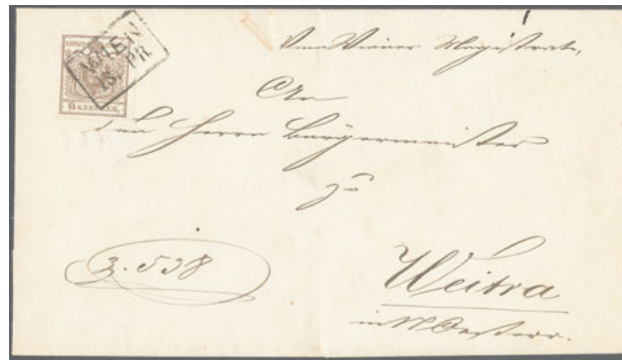 WIEN
18. APR
6 KREUZER
Vom Wiener Magistrate,
An
den Herrn Bürgermeister
zu
Z. 538
Weitra
in N Oesterr.